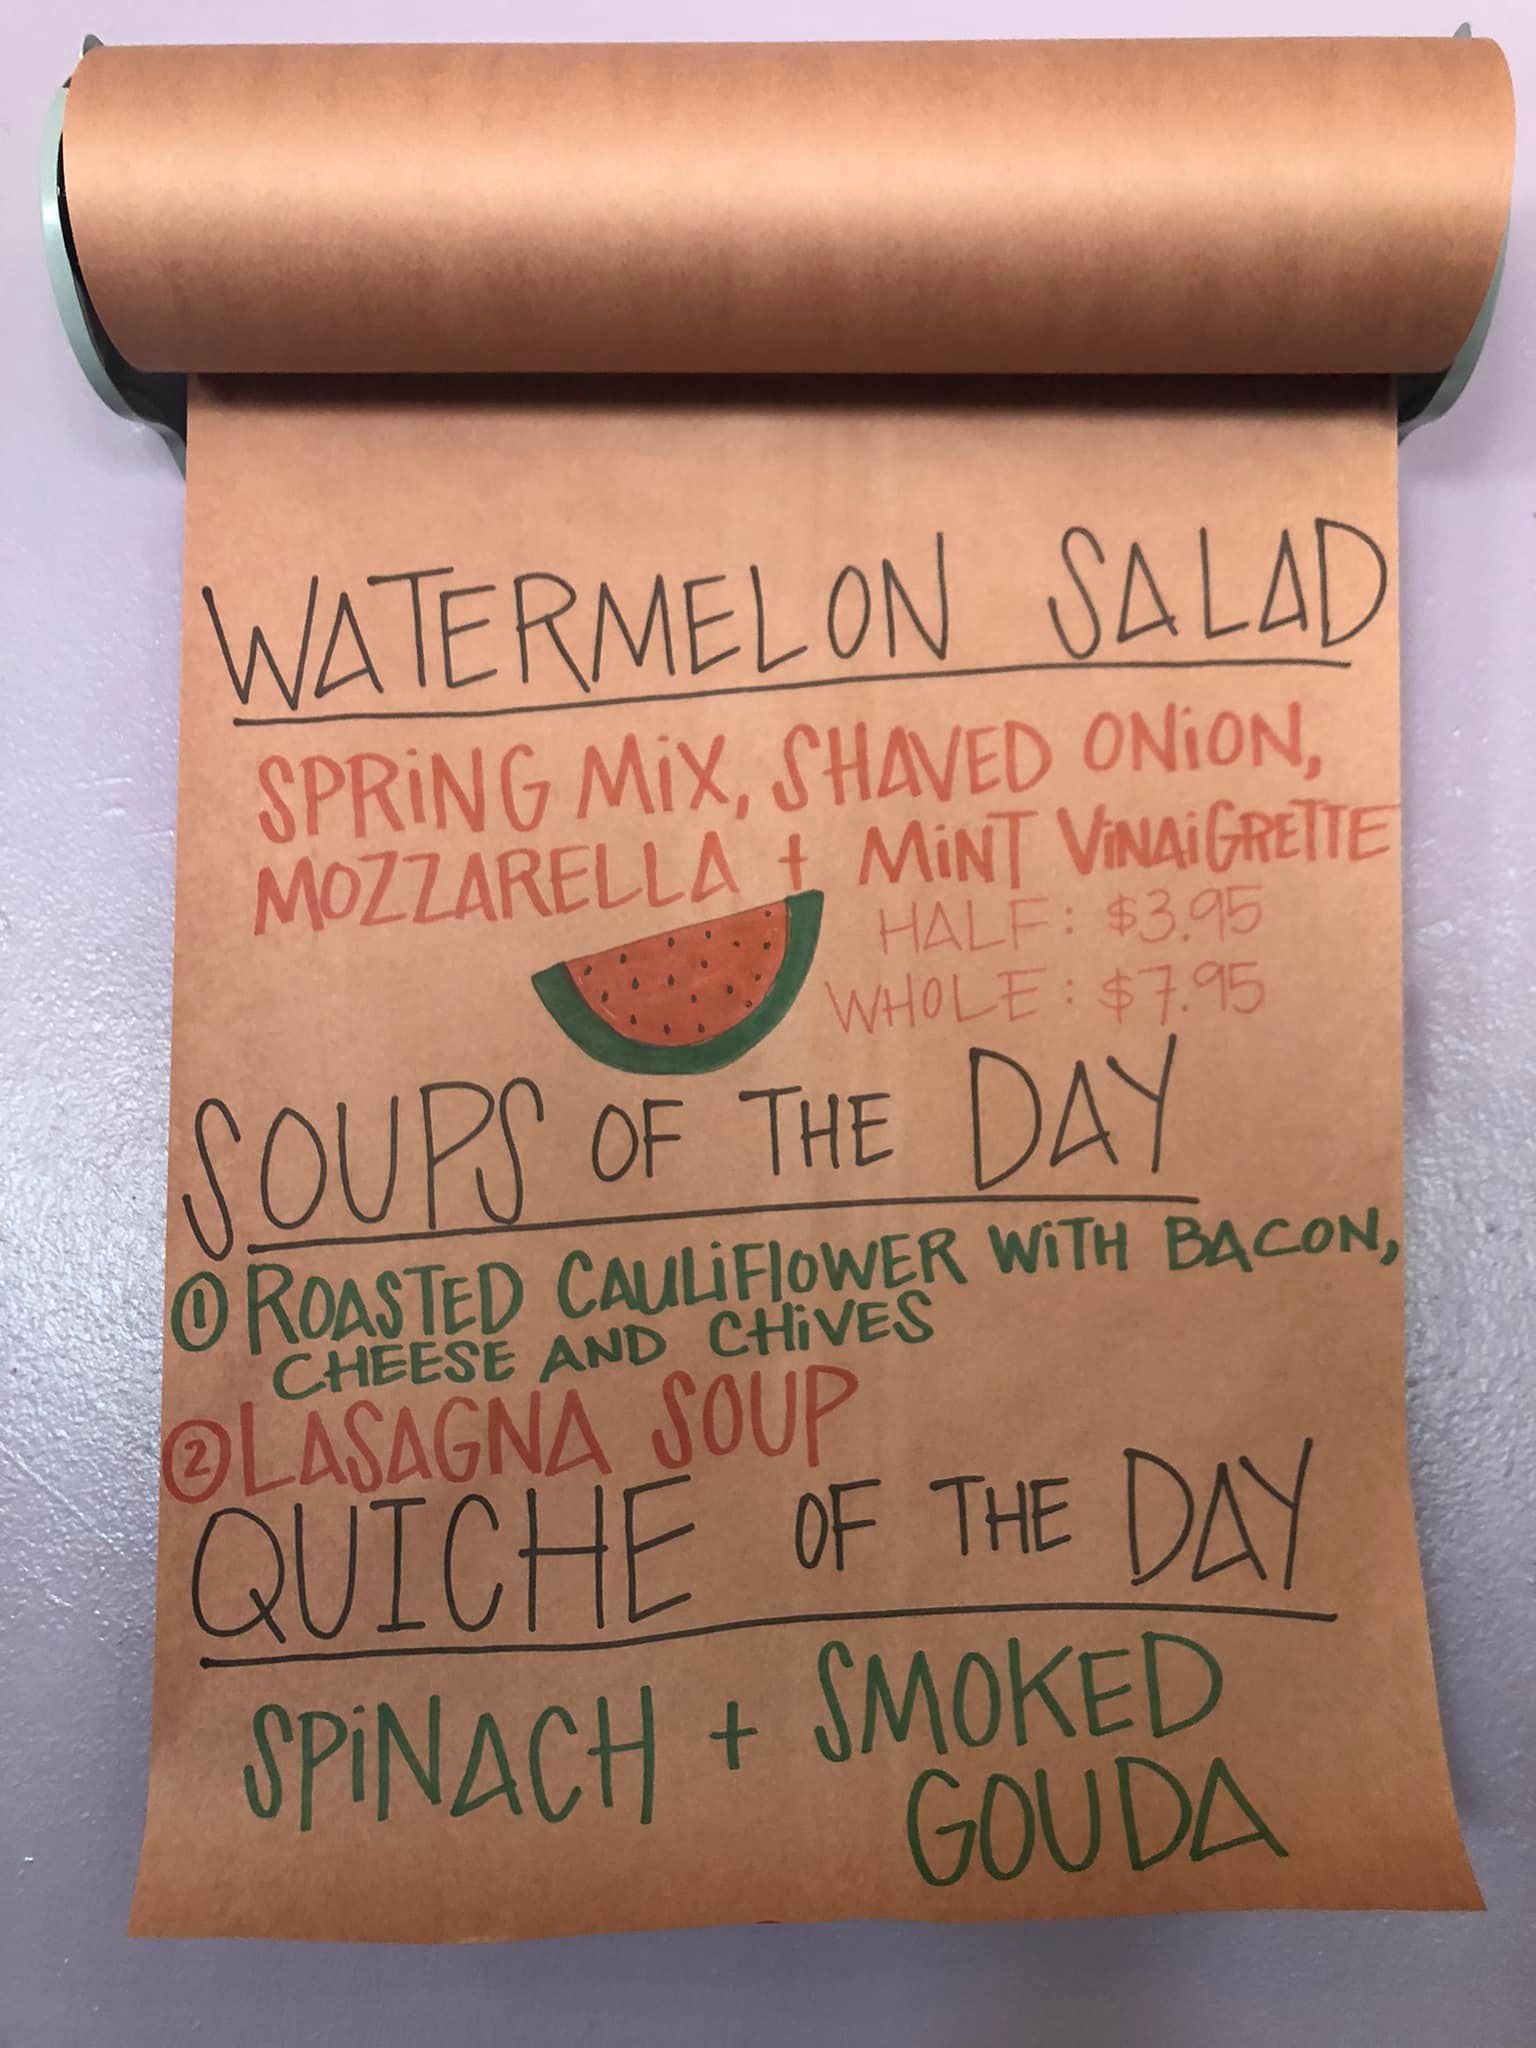 WATERMELON SALAD
SPRiNG MiX, SHAVED ONiON,
MOZZARELLA + MiNT ViNAiGRETTE
HALF: $3.95
WHOLE: $7.95
SOUPS OF THE DAY
① ROASTED CAULiFlOWER WiTH BACON,
CHEESE AND CHiVES
② LASAGNA SOUP
QUICHE OF THE DAY
SPiNACH + SMOKED
GOUDA